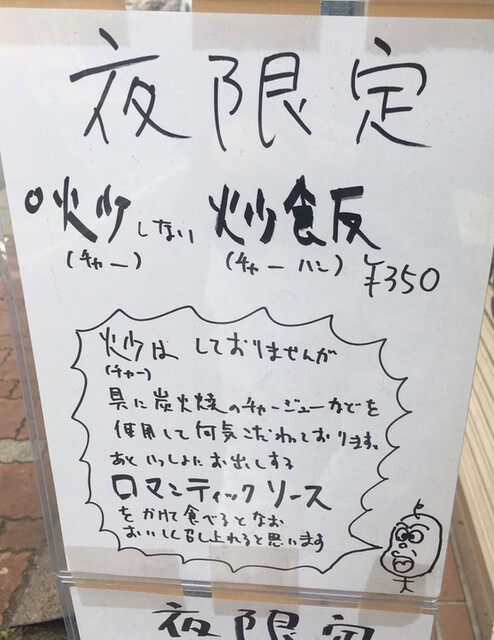 夜限定
○炒しない 炒飯
(チャー) (チャーハン) ¥350
炒はしておりませんが
(チャー)
具に炭火焼のチャーシューなどを
使用して何気こだわっております。
あといっしょにお出しする
ロマンティックソース
をかけて食べるとなお
おいしく召し上れると思います
夜限定